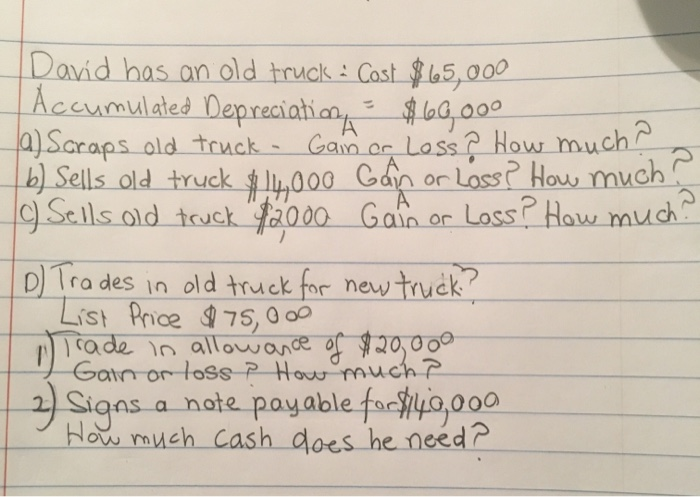 David has an old truck : Cost $65,000
Accumulated Depreciation, = $60,000
a) Scraps old truck - A Gain or Loss? How much?
b) Sells old truck $14,000 A Gain or Loss? How much?
c) Sells old truck $2000 A Gain or Loss? How much?
D) Trades in old truck for new truck?
List Price $75,000
1) Trade in allowance of $20,000
Gain or loss? How much?
2) Signs a note payable for $40,000
How much cash does he need?